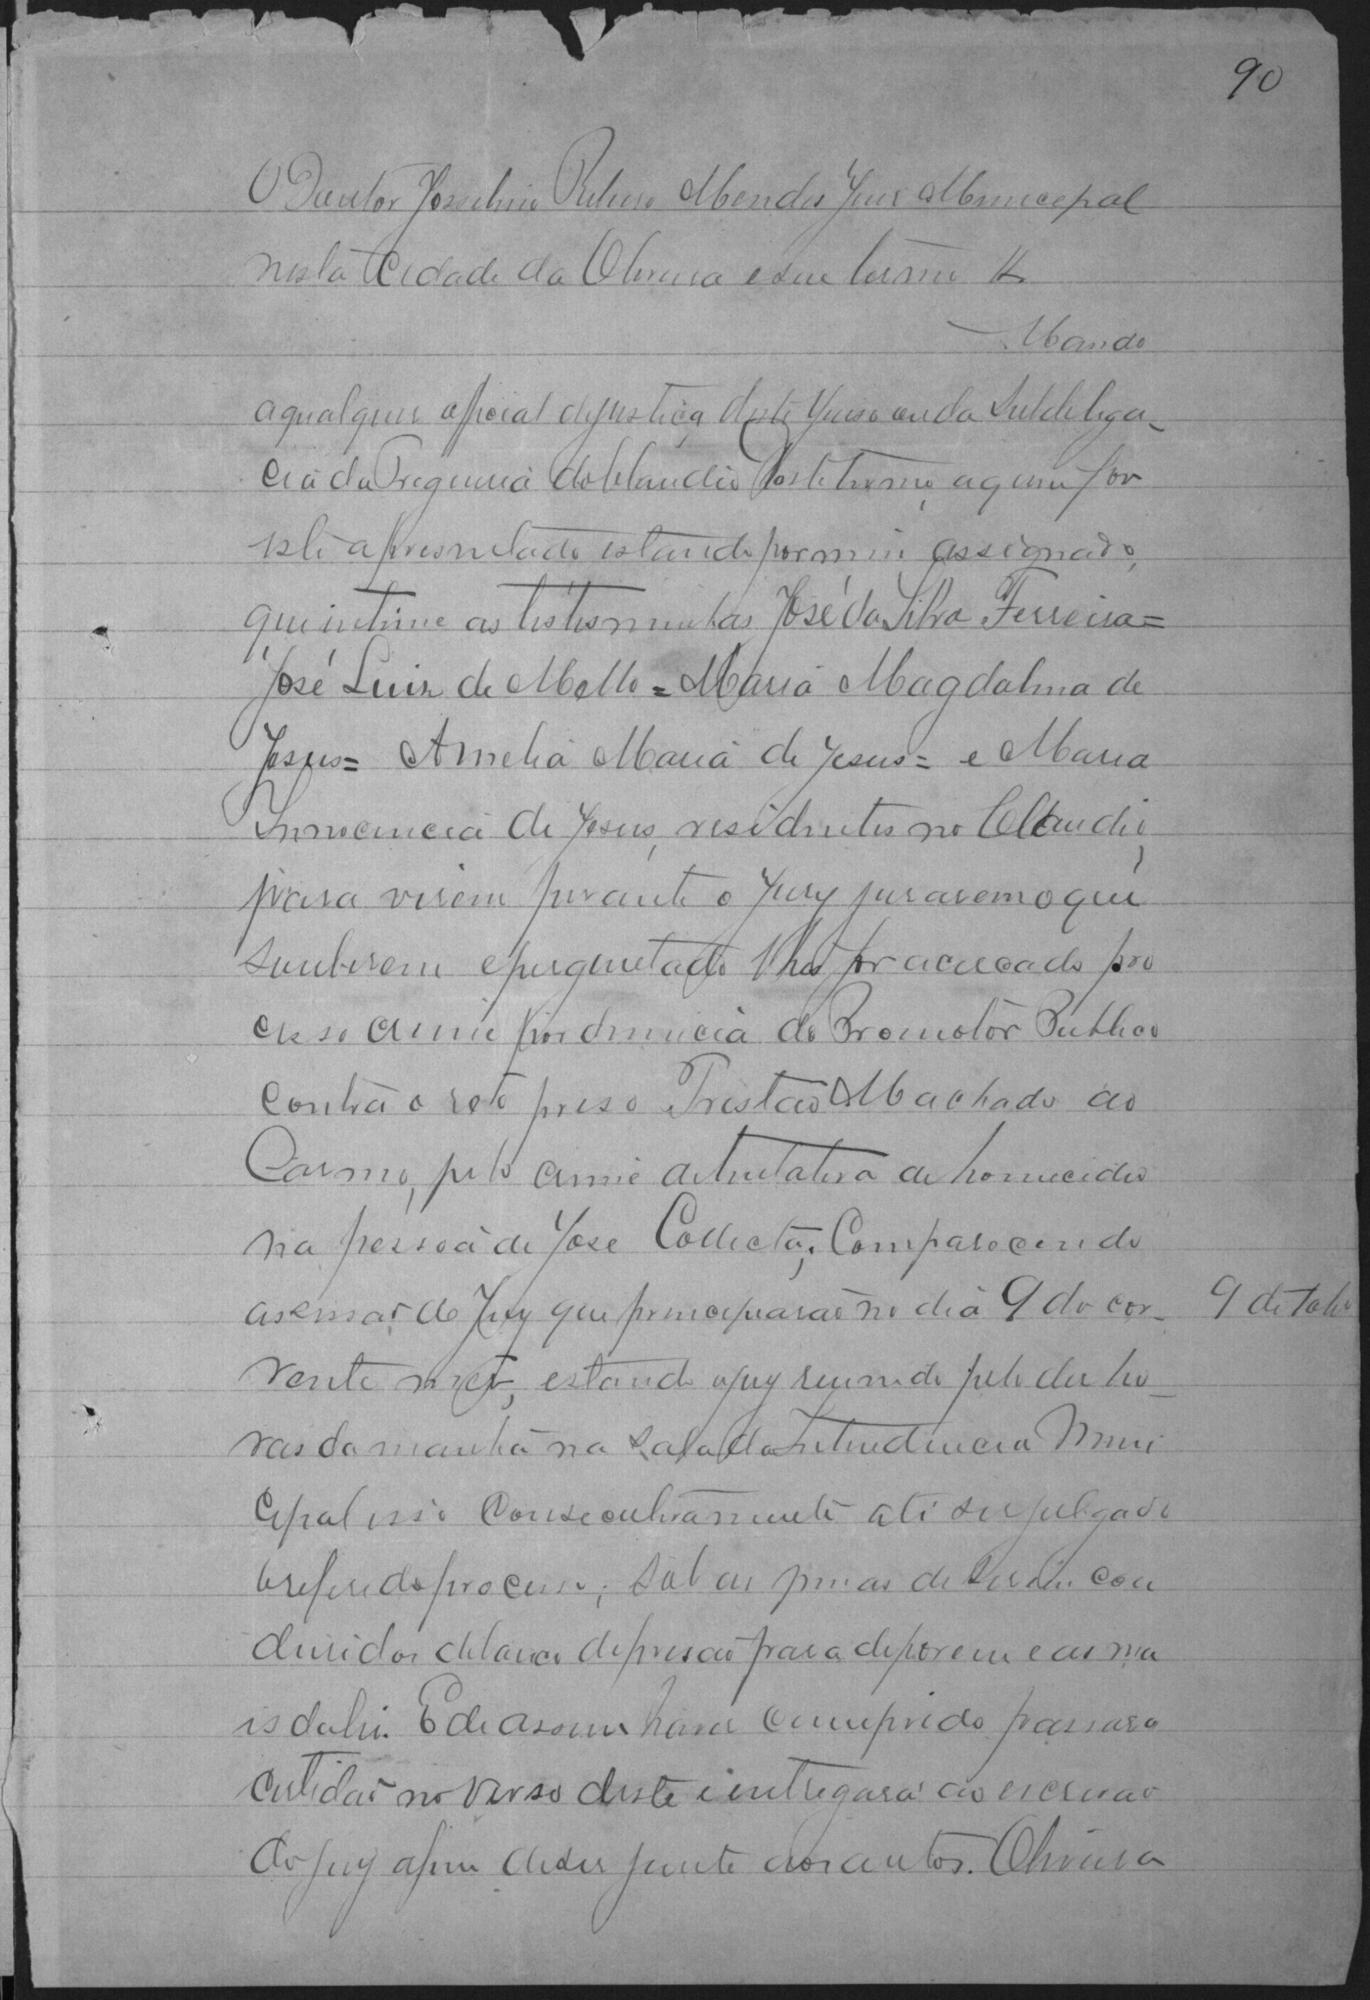 90
O Doutor Josselino Ribeiro Mendes Juiz Municepal
nesta Cidade da Oliveira e seu termo &
Mando
a qualquer oficial de justiça deste Juiso ou da Subdelega-
cia da Freguezia do Claudio deste termo, a quem for
este apresentado estando por mim assignado,
que intime as testesmunhas José da Silva Ferreira=
José Luiz de Mello = Maria Magdalena de
Jesus= Amelia Maria de Jesus= e Maria
Innocencia de Jesus, residentes no Claudio,
para virem perante o Jury jurarem o que
souberem e perguntado lhes for acerca do pro
cesso crime por denuncia do Promotor Publico
contra o reo preso Tristão Machado do
Carmo, pelo crime de tentativa de homecidio
na pessoa de Jose Collecta; Comparecendo
a sessão do Jury que principiará no dia 9 do cor-
9 de
rente mez, estando o jury reunido pelo dez ho-
ras da manhã na sala da Intendencia Muni
cepal e isso consecutivamente até ser julgado
o referido processo; sob as penas de serem con
duzidos debaixo de prisão para deporem e as ma
is da lei. E de assim haver cumprido passará
certidão no verso deste e entregará ao escrivão
do jury afim de ser junto aos autos. Oliveira